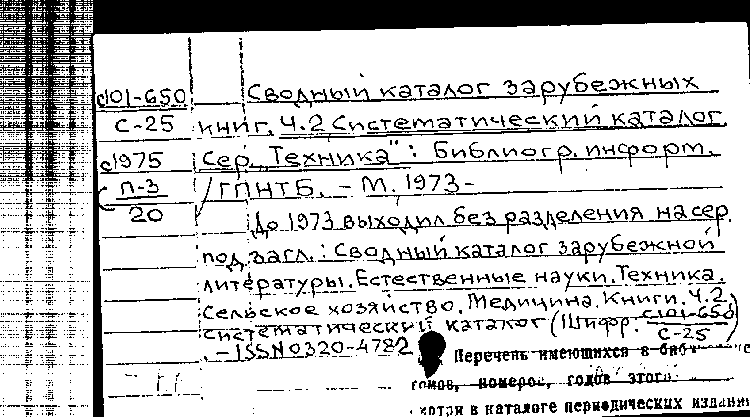 с101-650
С-25
с1975
П-3
20
Сводный каталог зарубежных
книг. Ч.2 Систематический каталог
Сер. „Техника“: Библиогр. информ.
/ГПНТБ. – М. 1973 –
До 1973 выходил без разделения на сер.
под загл.: Сводный каталог зарубежной
литературы. Естественные науки. Техника.
Сельское хозяйство. Медицина. Книги. Ч.2.
Систематический каталог (Шифр. с101-650
С-25)
. – ISSN 0320-4782
Перечень имеющихся в
томов, номеров, годов этого
смотри в каталоге периодических